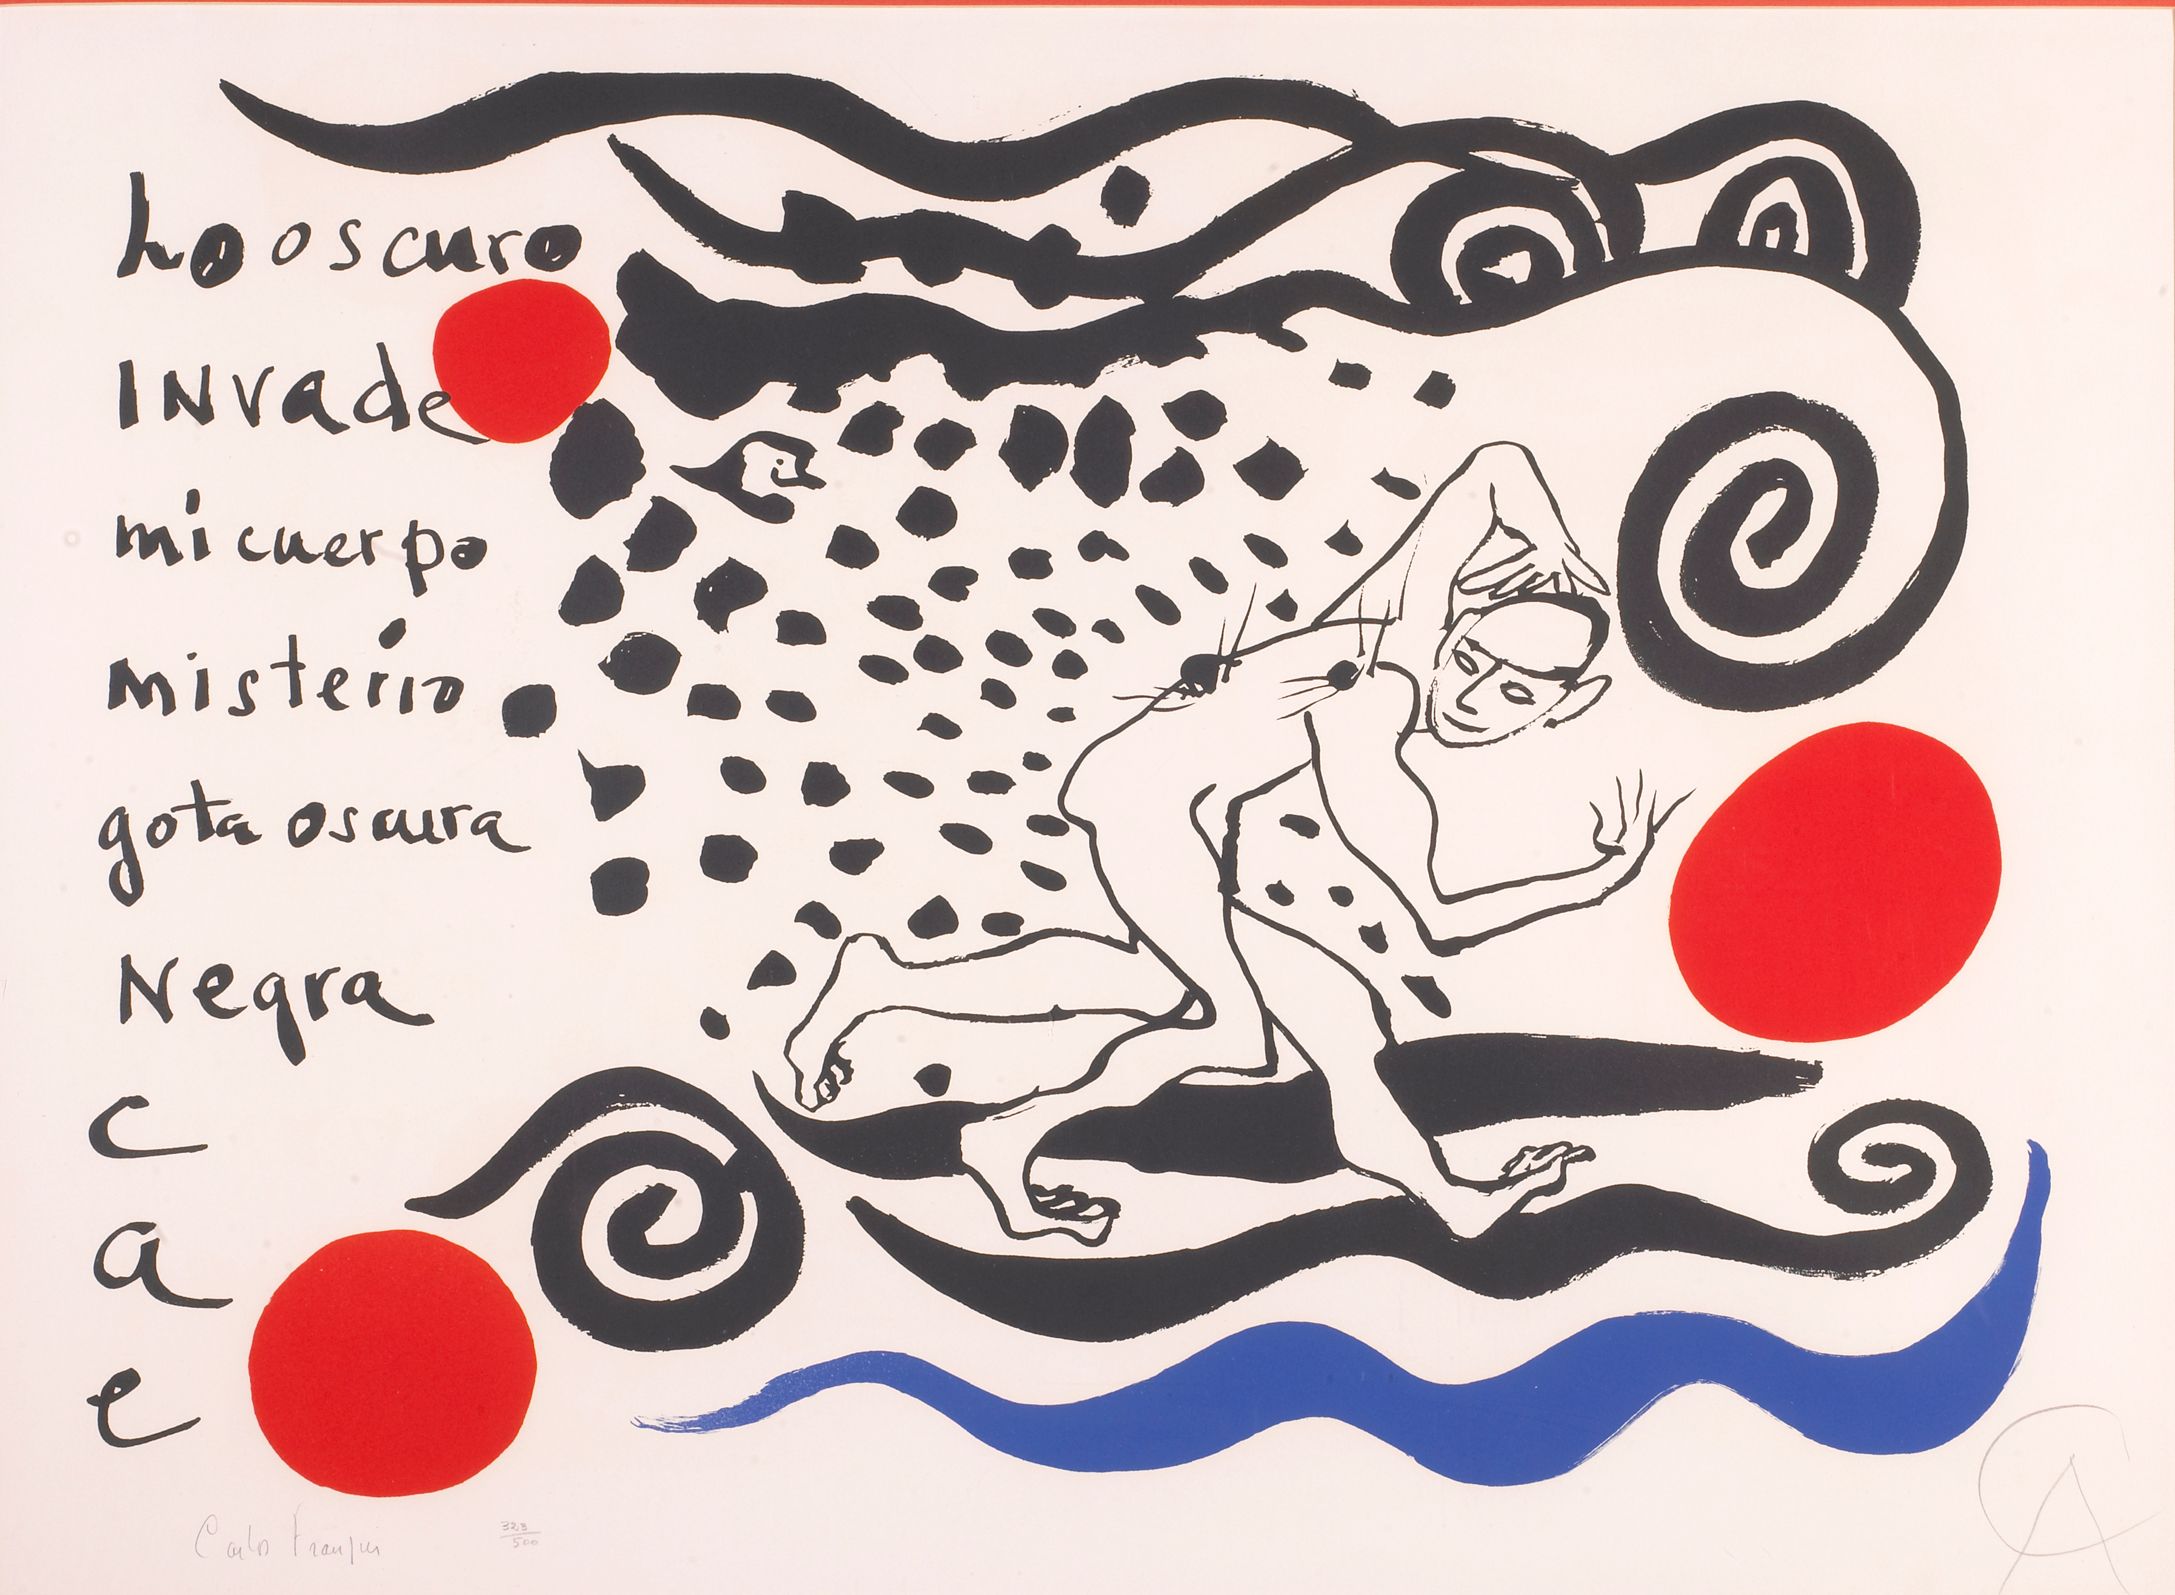 Lo oscuro
INvade
mi cuerpo
misterio
gota oscura
Negra
c
a
e
Carlos Franqui
323/500
CA